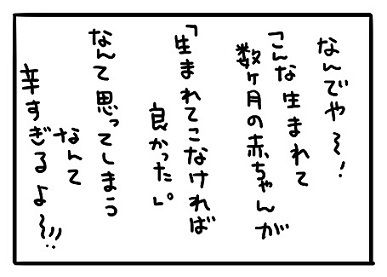 なんでや〜!
「こんな生まれて
数ヶ月の赤ちゃんが
「生まれてこなければ
良かった」。
なんて思ってしまう
なんて
辛すぎるよ〜!!